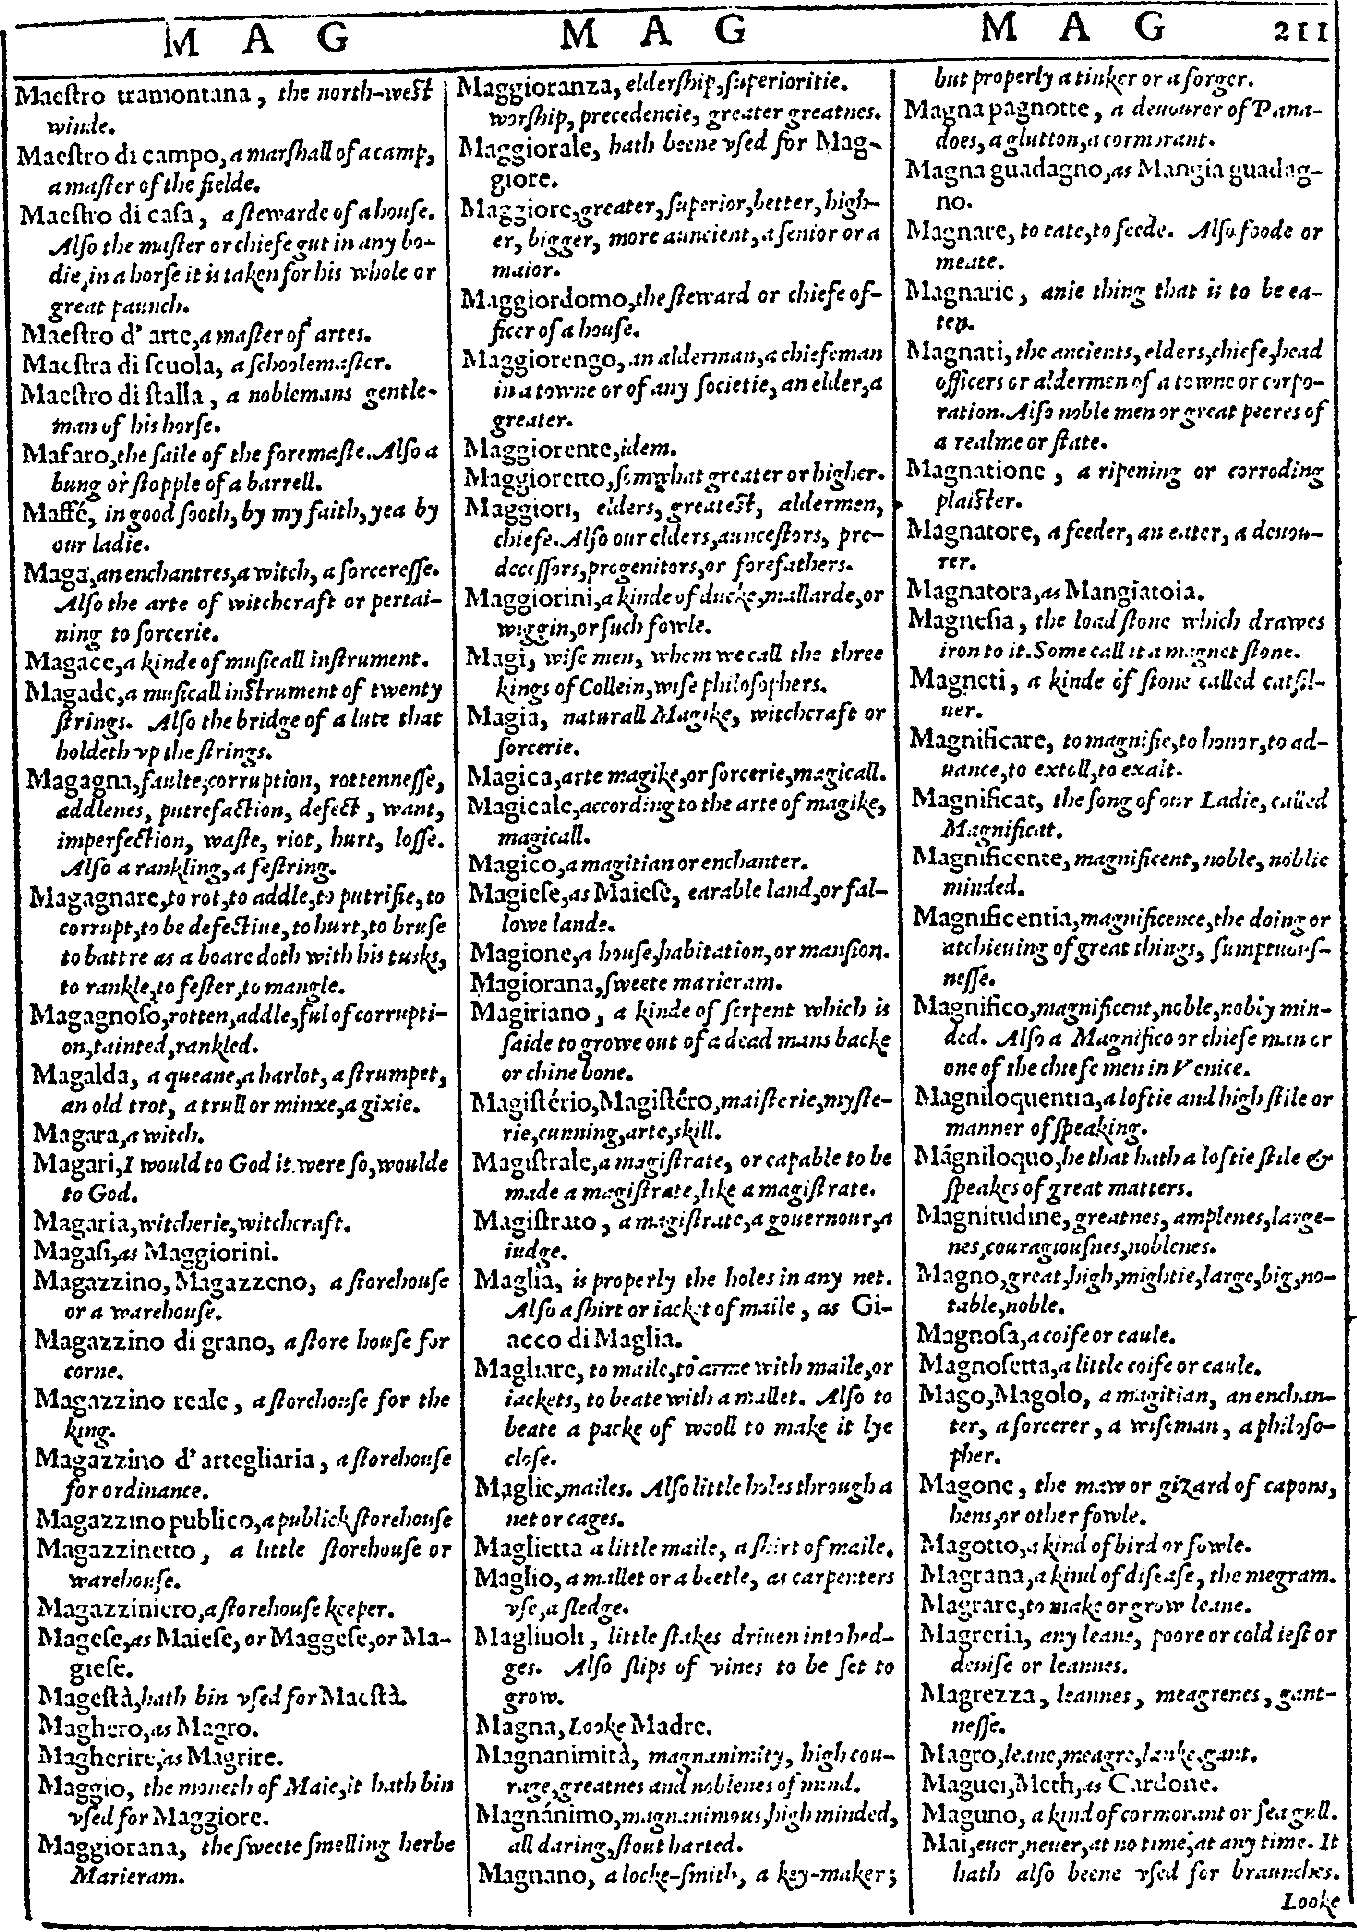 M A G M A G M A G 211
Maeſtro tramontana, the north-weſt
winde.
Maeſtro di campo, a marſhall of a camp,
a maſter of the fielde.
Maeſtro di caſa, a ſtewarde of a houſe.
Alſo the maſter or chiefe gut in any bo-
die, in a horſe it is taken for his whole or
great paunch.
Maeſtro d' arte, a maſter of artes.
Maeſtra di ſcuola, a ſchoolemaſter.
Maeſtro di ſtalla, a noblemans gentle-
man of his horſe.
Mafaro, the ſaile of the foremaſte. Alſo a
bung or ſtopple of a barrell.
Maffé, in good ſooth, by my faith, yea by
our ladie.
Maga, an enchantres, a witch, a ſorcereſſe.
Alſo the arte of witchcraft or pertai-
ning to ſorcerie.
Magace, a kinde of muſicall inſtrument.
Magade, a muſicall inſtrument of twenty
ſtrings. Alſo the bridge of a lute that
holdeth vp the ſtrings.
Magagna, faulte, corruption, rottenneſſe,
addlenes, putrefaction, defect, want,
imperfection, waſte, riot, hurt, loſſe.
Alſo a rankling, a feſtring.
Magagnare, to rot, to addle, to putrifie, to
corrupt, to be defectiue, to hurt, to bruſe
to battre as a boare doth with his tusks,
to rankle, to feſter, to mangle.
Magagnoſo, rotten, addle, ful of corrupti-
on, tainted, rankled.
Magalda, a queane, a harlot, a ſtrumpet,
an old trot, a trull or minxe, a gixie.
Magara, a witch.
Magari, I would to God it were ſo, woulde
to God.
Magaria, witcherie, witchcraft.
Magaſi, as Maggiorini.
Magazzino, Magazzeno, a ſtorehouſe
or a warehouſe.
Magazzino di grano, a ſtore houſe for
corne.
Magazzino reale, a ſtorehouſe for the
king.
Magazzino d' artegliaria, a ſtorehouſe
for ordinance.
Magazzino publico, a publick ſtorehouſe
Magazzinetto, a little ſtorehouſe or
warehouſe.
Magazziniero, a ſtorehouſe keeper.
Mageſe, as Maieſe, or Maggeſe, or Ma-
gieſe.
Mageſtà, hath bin vſed for Maeſtà.
Maghero, as Magro.
Magherire, as Magrire.
Maggio, the moneth of Maie, it hath bin
vſed for Maggiore.
Maggiorana, the ſweete ſmelling herbe
Marieram.
Maggioranza, elderſhip, ſuperioritie.
worſhip, precedencie, greater greatnes.
Maggiorale, hath beene vſed for Mag-
giore.
Maggiore, greater, ſuperior, better, high-
er, bigger, more auncient, a ſenior or a
maior.
Maggiordomo, the ſteward or chiefe of-
ficer of a houſe.
Maggiorengo, an alderman, a chiefe man
in a towne or of any ſocietie, an elder, a
greater.
Maggiorente, idem.
Maggioretto, ſomwhat greater or higher.
Maggiori, elders, greateſt, aldermen,
chiefe. Alſo our elders, aunceſtors, pre-
deceſſors, progenitors, or forefathers.
Maggiorini, a kinde of ducke, mallarde, or
wiggin, or ſuch fowle.
Magi, wiſe men, whom we call the three
kings of Collein, wiſe philoſophers.
Magia, naturall Magike, witchcraft or
ſorcerie.
Magica, arte magike, or ſorcerie, magicall.
Magicale, according to the arte of magike,
magicall.
Magico, a magitian or enchanter.
Magieſe, as Maieſe, earable land, or fal-
lowe lande.
Magione, a houſe, habitation, or manſion.
Magiorana, ſweete marieram.
Magiriano, a kinde of ſerpent which is
ſaide to growe out of a dead mans backe
or chine bone.
Magiſtério, Magiſtéro, maiſterie, myſte-
rie, cunning, arte, skill.
Magiſtrale, a magiſtrate, or capable to be
made a magiſtrate, like a magiſtrate.
Magiſtrato, a magiſtrate, a gouernour, a
iudge.
Maglia, is properly the holes in any net.
Alſo a ſhirt or iacket of maile, as Gi-
acco di Maglia.
Magliare, to maile, to arme with maile, or
iackets, to beate with a mallet. Alſo to
beate a packe of wooll to make it lye
cloſe.
Maglie, mailes. Alſo little holes through a
net or cages.
Maglietta a little maile, a ſhirt of maile.
Maglio, a mallet or a beetle, as carpenters
vſe, a ſledge.
Magliuoli, little ſtakes driuen into hed-
ges. Alſo ſlips of vines to be ſet to
grow.
Magna, Looke Madre.
Magnanimità, magnanimity, high cou-
rage, greatnes and noblenes of mind.
Magnánimo, magnanimous, high minded,
all daring, ſtout harted.
Magnano, a locke-ſmith, a key-maker;
but properly a tinker or a forger.
Magna pagnotte, a deuourer of Pana-
does, a glutton, a cormorant.
Magna guadagno, as Mangia guadag-
no.
Magnare, to eate, to feede. Alſo foode or
meate.
Magnarie, anie thing that is to be ea-
ten.
Magnati, the ancients, elders, chiefe, head
officers or aldermen of a towne or corpo-
ration. Alſo noble men or great peeres of
a realme or ſtate.
Magnatione, a ripening or corroding
plaiſter.
Magnatore, a feeder, an eater, a deuou-
rer.
Magnatora, as Mangiatoia.
Magneſia, the load ſtone which drawes
iron to it. Some call it a magnet ſtone.
Magneti, a kinde of ſtone called catſil-
uer.
Magnificare, to magnifie, to honor, to ad-
uance, to extoll, to exalt.
Magnificat, the ſong of our Ladie, called
Magnificat.
Magnificente, magnificent, noble, noblie
minded.
Magnificentia, magnificence, the doing or
atchieuing of great things, ſumptuouſ-
neſſe.
Magnifico, magnificent, noble, nobly min-
ded. Alſo a Magnifico or chiefe man or
one of the chiefe men in Venice.
Magniloquentia, a loftie and high ſtile or
manner of ſpeaking.
Mágniloquo, he that hath a loftie ſtile &
ſpeakes of great matters.
Magnitudine, greatnes, amplenes, large-
nes, couragiouſnes, noblenes.
Magno, great, high, mightie, large, big, no-
table, noble.
Magnoſa, a coife or caule.
Magnoſetta, a little coife or caule.
Mago, Magolo, a magitian, an enchan-
ter, a ſorcerer, a wiſeman, a philoſo-
pher.
Magone, the maw or gizard of capons,
hens, or other fowle.
Magotto, a kind of bird or fowle.
Magrana, a kind of diſeaſe, the megram.
Magrare, to make or grow leane.
Magreria, any leane, poore or cold ieſt or
deuiſe or leannes.
Magrezza, leannes, meagrenes, gant-
neſſe.
Magro, leane, meagre, lanke, gant.
Maguei, Meth, as Cardone.
Maguno, a kind of cormorant or ſea gull.
Mai, euer, neuer, at no time, at any time. It
hath alſo beene vſed for braunches.
Looke